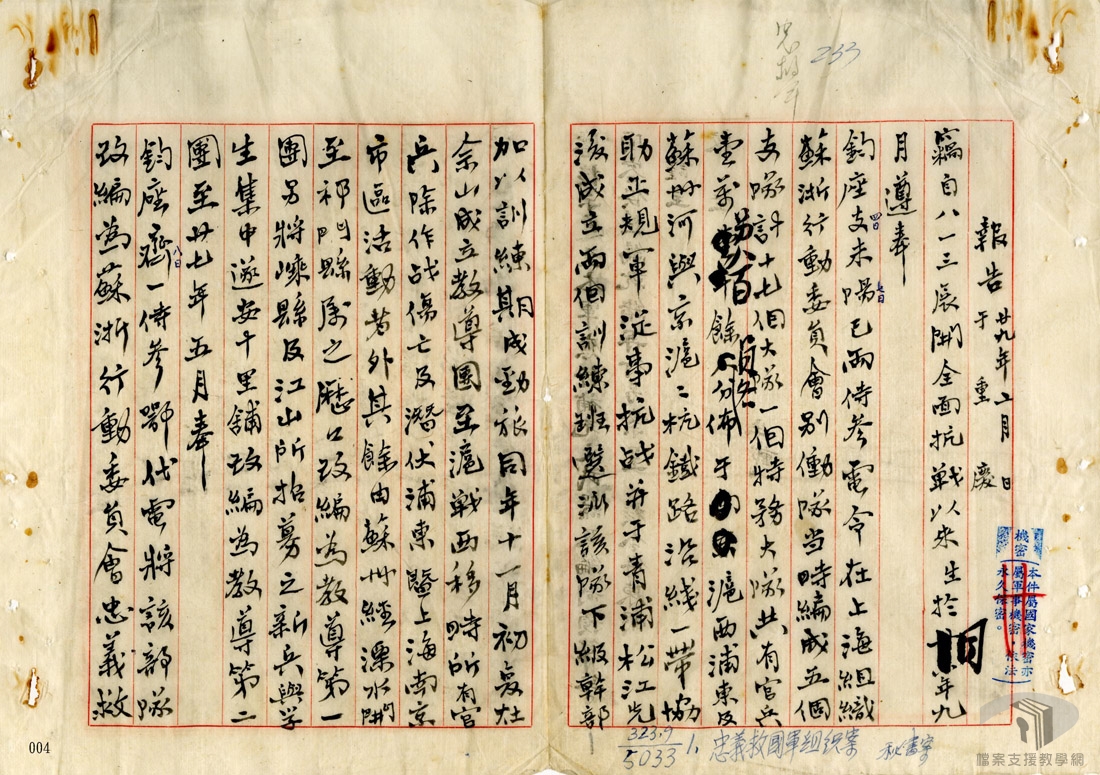 233
報告 廿九年二月 日
于重慶
竊自八一三展開全面抗戰以來生於同年九
月遵奉
鈞座支未陽巳兩侍參電令在上海組織
四日
七日
蘇浙行動委員會別働隊当時編成五個
支隊計十七個大隊一個特務大隊共有官兵
壹萬 百餘員名分佈于 滬西浦東及
蘇州河與京滬二杭鐵路沿綫一帶協
助正規軍從事抗战并于青浦松江先
後成立兩個訓練班選派該隊下級幹部
加以訓練期成勁旅同年十一月初復在
佘山成立教導團至滬戰西移時所有官
兵除作战傷亡及潛伏浦東暨上海南京
市區活動者外其餘由蘇州經溧水開
至祁門縣屬之歷口改編為教導第一
團另將嵊縣及江山所招募之新兵與學
生集中遂安十里鋪改編為教導第二
團至廿七年五月奉
鈞座齊一侍參鄂代電將該部隊
八日
改編為蘇浙行動委員會忠義救
機密
本件屬國家機密亦
屬軍事機密，依法
永久保密。
323.9
5033
1.
忠義救國軍組織案
秘書室
004
檔案支援教學網